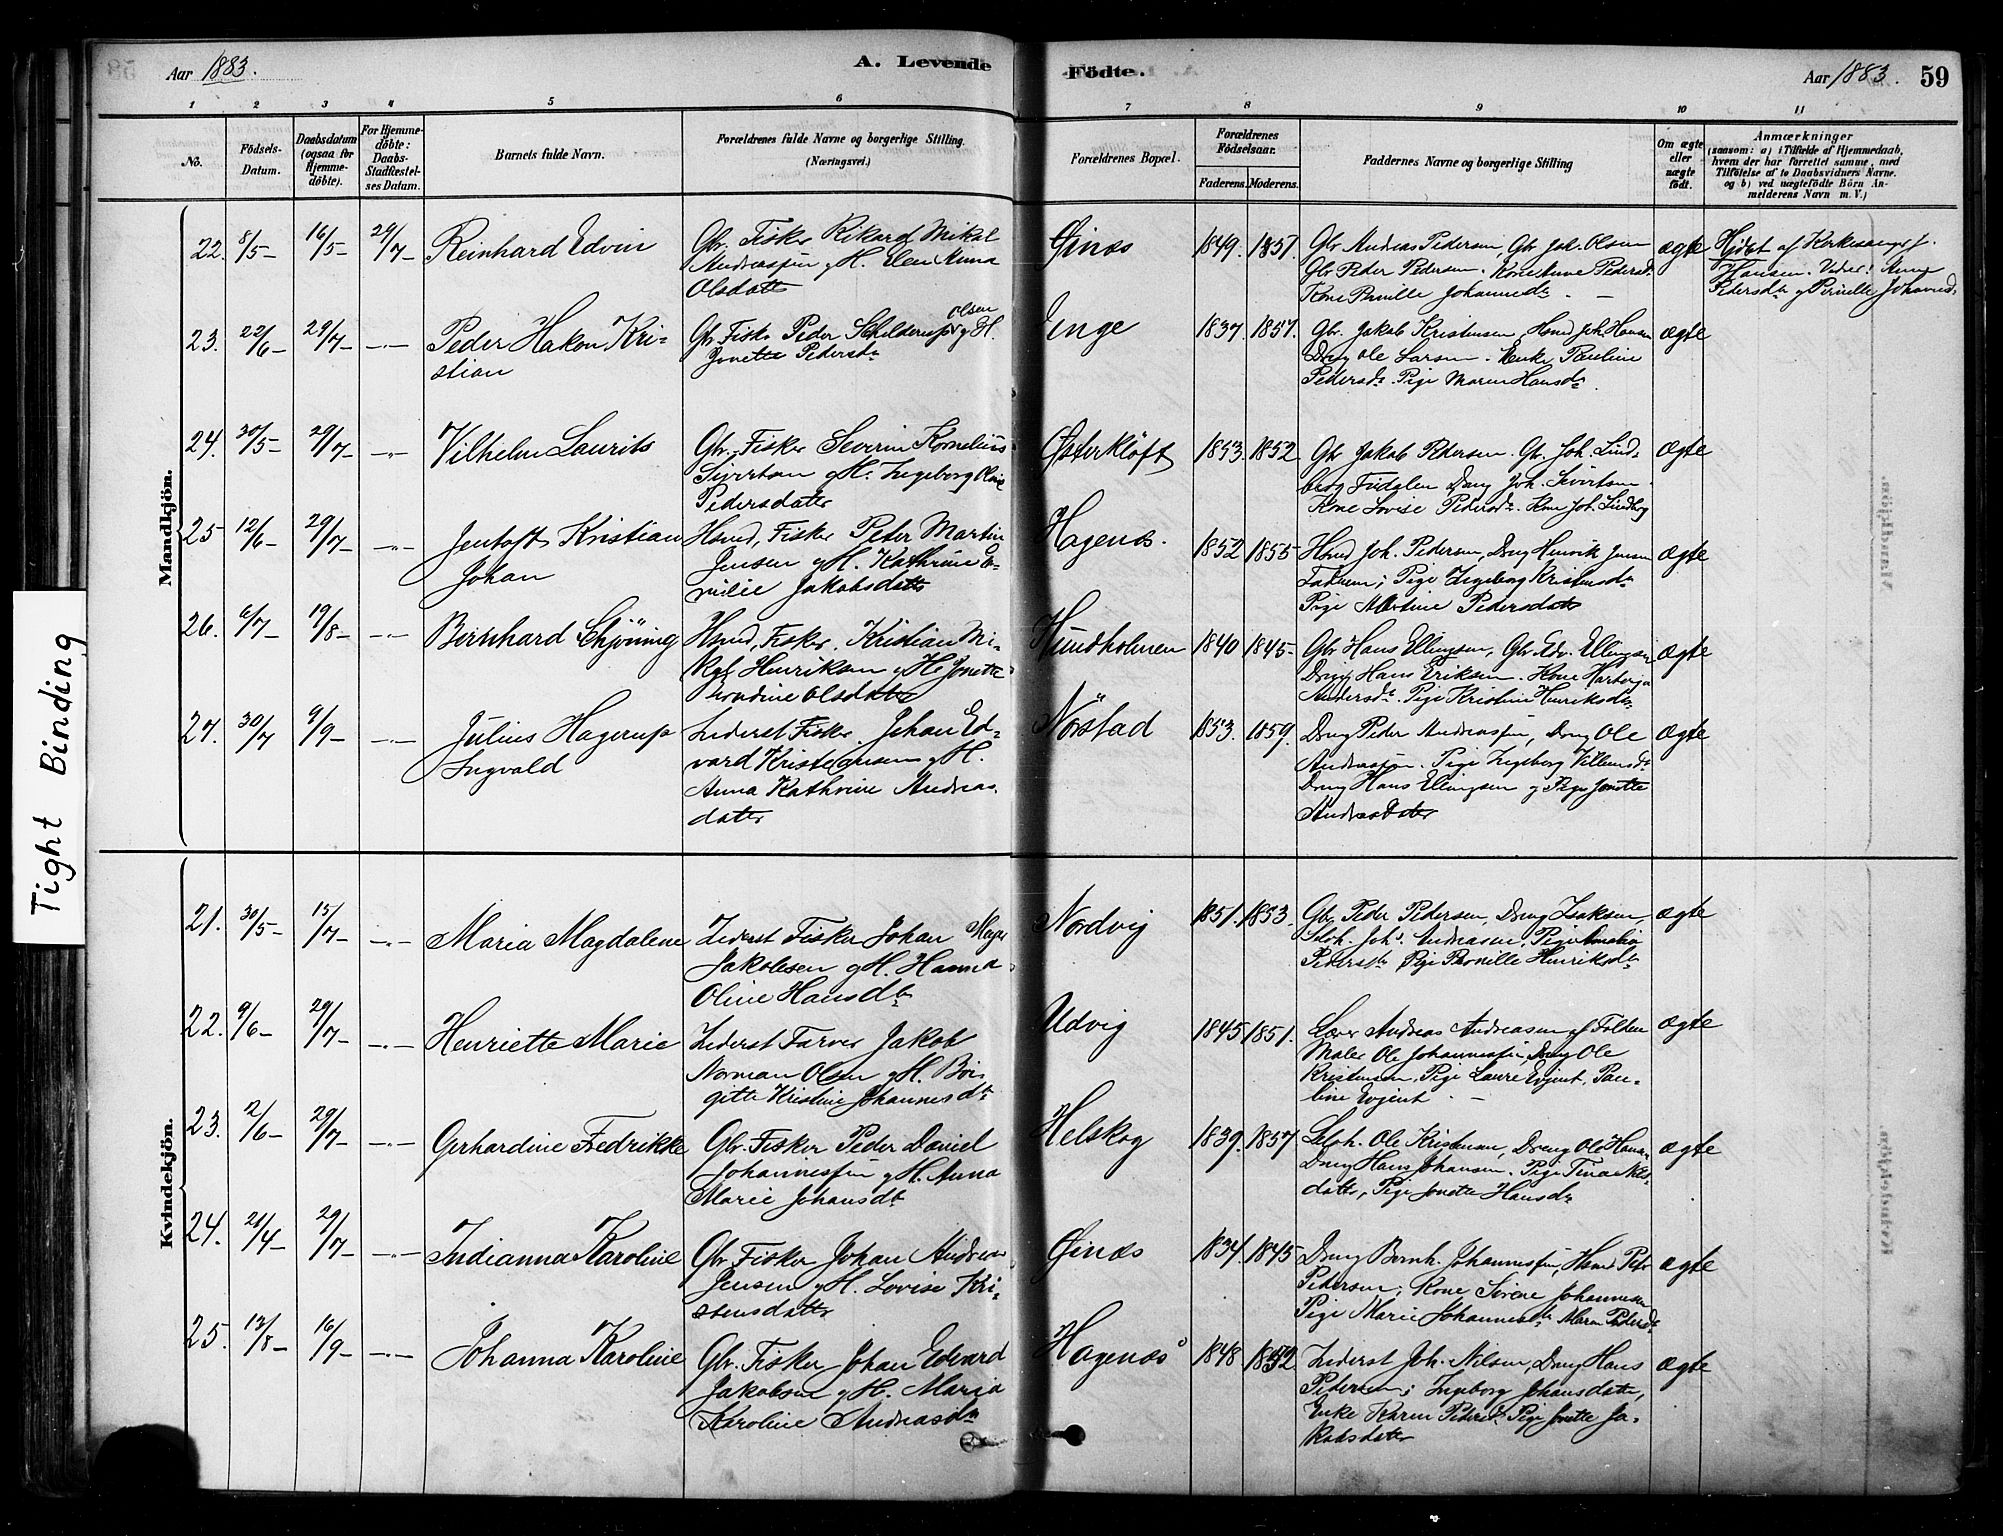 Aar 1883.
A. Levende
Födte.
Aar 1883.
59
1 2 3 4 5 6
7 8 9 10 11
No.
Födsels-
Datum.
Daabsdatum
(ogsaa for
Hjemme-
döbte).
For Hjemme-
döbte:
Daabs-
Stadfæstel-
ses Datum.
Barnets fulde Navn.
Forældrenes fulde Navne og borgerlige Stilling.
(Næringsvei.)
Forældrenes Bopæl.
Forældrenes
Födselsaar.
Faderens. Moderens.
Faddernes Navne og borgerlige Stilling
Om ægte
eller
uægte
födt.
Anmærkninger
(saasom: a) i Tilfælde af Hjemmedaab,
hvem der har forrettet samme, med
Tilföielse af to Daabsvidners Navne.
og b) ved uægtefödte Börn An-
melderens Navn m. V.)
Mandkjön.
22. 8/5- 16/5- 29/7- Reinhard Edvin
Gbr. Fisker Rikard Mikal
Andreassen g H. Elen Anna
Olsdatter
Ginæs 1849. 1857.
Gbr Andreas Pedersen, Gbr Joh. Olsen
Gbr Peder Pedersen. Kone Anne Pedersd
Kone Pernille Johannesdr
ægte
Hjdøbt af Kirkesanger J.
Hansen. Vidner: Anne
Pedersdr og Pernille Johannesd.
23. 22/6- 29/7- -"- Peder Hakon Kri-
stian
Olsen
Gbr Fisker Peder Schelderup g H.
Jonette Pedersdr
Enge 1837. 1857.
Gbr. Jakob Kristensen, Hsmd Joh. Hansen
Dreng Ole Larsen. Enke Pauline
Pedersdr. Pige Maren Hansdr.
ægte
24. 30/5- 29/7- -"- Vilhelm Laurits
Gbr. Fisker Severin Kornelius
Sivertsen g H. Ingeborg Oline
Pedersdatter
Østerkløft 1853. 1852
Gbr Jakob Pedersen. Gb. Joh. Lind-
berg Dreng Joh. Sivertsen.
Kone Lovise Pedersdr. Kone Joh. Lindberg
ægte
25 12/6- 29/7- -"- Jentoft Kristian
Johan
Hsmd, Fisker Peter Martin
Jensen g H. Kathrine E-
milie Jakobsdatter
Hagenæs. 1852 1855
Hsmd Joh. Pedersen, Dreng Henrik Jensen
Faderen; Pige Ingeborg Kristensdr
Pige Martine Pedersdatter
ægte
26. 6/7- 19/8- -"- Bernhard Schjöning
Hsmd, Fisker. Kristian Mi-
kal Henriksen g H. Jonette
Olsdatter
Hundholmen 1840 1845-
Gbr Hans Ellingsen, Gbr Edv. Ellingsen
Dreng Hans Eriksen. Kone
Andersdr. Pige Kristine Henriksdr.
ægte
27. 30/7 9/9- -"- Julius Hagerup
Ingvald
Inderst Fisker. Johan Ed-
vard Kristensen g H.
Anna Kathrine Andreas
datter
Nörstad 1853. 1859.
Dreng Peder Andreassen, Dreng Ole
Andreassen. Pige Ingeborg Villumsdr
Dreng Hans Ellingsen og Pige Jonette
Andreasdatter
ægte
Kvindekjön.
21. 30/5- 15/7- -"- Maria Magdalene
Inderst Fisker Johan Meyer
Jakobsen g H. Hanna
Oline Hansdtr
Nordvig 1851. 1853.
Gbr. Peder Pedersen, Dreng Isaksen,
Joh. Andreasen, Pige Amalia
Pedersdtr Pige Pernille Henriksdtr
ægte
22. 9/6- 29/7- -"- Henriette Marie
Inderst Farver Jakob
Norman Olsen g H. Bir-
gitte Kristine Johannesdtr
Udvig 1845 1851.
Lærer Andreas Andreasen af Folden
Maler Ole Johannessen, Dreng Ole
Kristensen, Pige Laure Evjent, Pau-
line Evjent. -
ægte
23. 2/6- 29/7- -"- Gerhardine Fredrikke
Gbr. Fisker Peder Daniel
Johannessen g H. Anna
Marie Johansdtr
Helskog 1839. 1857
Ole Kristensen, Dreng Ole Hansen
Dreng Hans Johansen. Pige Tina Nils-
datter, Pige Jonette Hansdr
ægte
24. 21/4- 29/7- -"- Indianna Karoline
Gbr Fisker Johan Andreas
Jensen g H. Lovise Kri-
stensdatter
Ginæs 1834. 1845
Dreng Bernh. Johannessen, Hsmd Peter
Pedersen, Kone Sirene Johannesen
Pige Marie Johannesdtr Maren Pedersdr
ægte
25. 13/8- 16/9- -"- Johanna Karoline
Gbr. Fisker Johan Edvard
Jakobsen g H. Maria
Karoline Andreasdr
Hagenæs 1848 1852
Inderst Joh. Nilsen, Dreng Hans
Pedersen; Ingeborg Johansdatter,
Enke Karen Pedersd. Pige Jonette Ja-
kobsdatter
ægte
Tight Binding